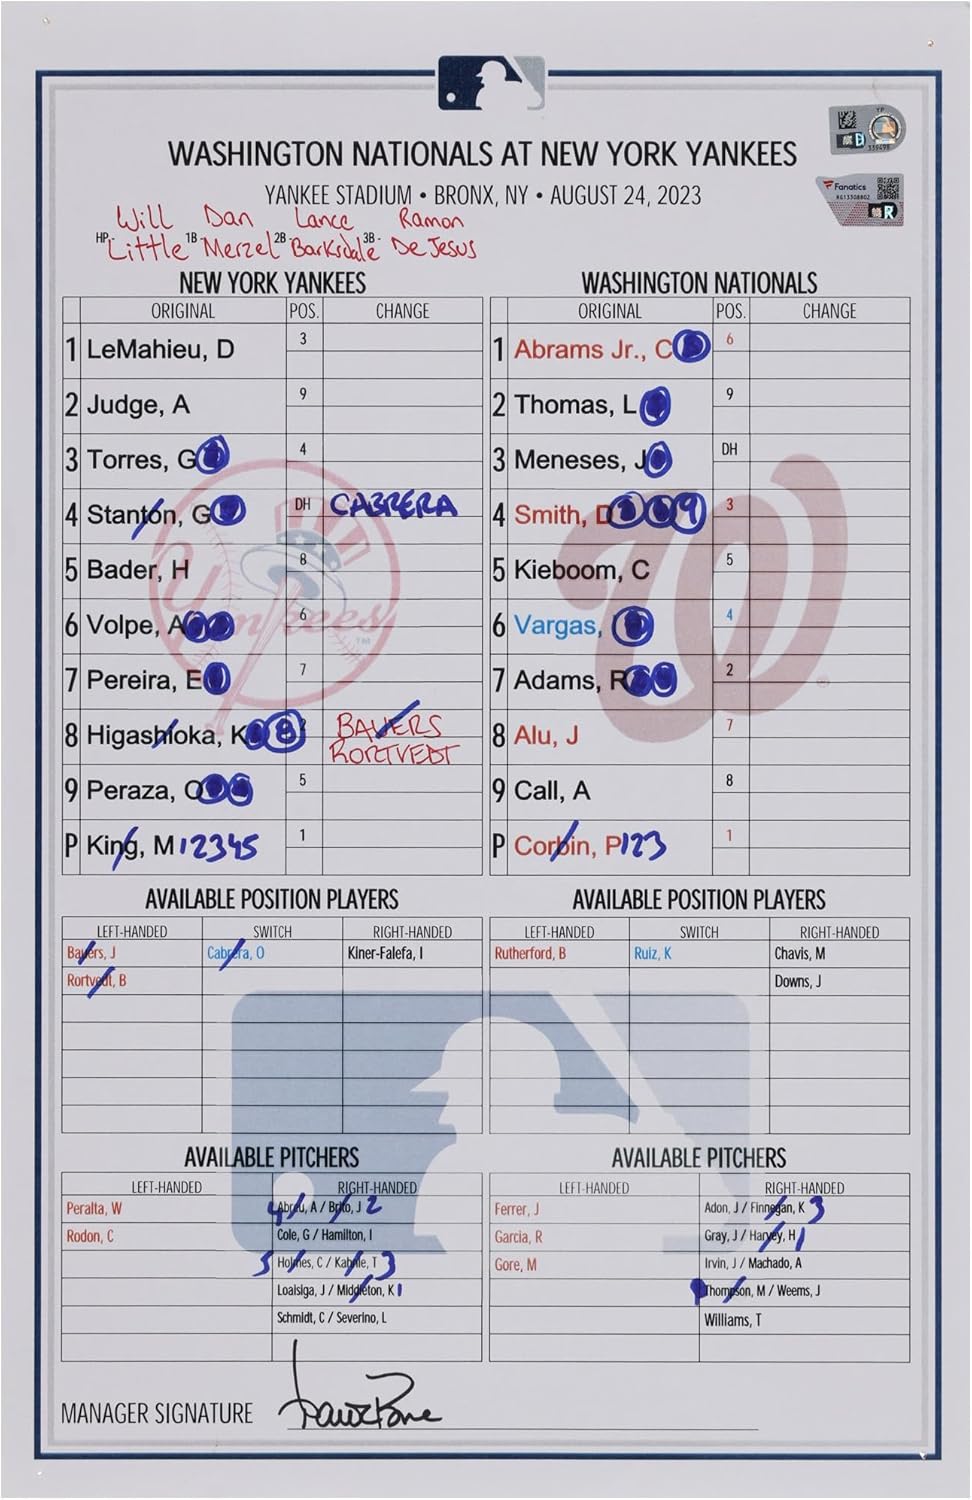 WASHINGTON NATIONALS AT NEW YORK YANKEES
YANKEE STADIUM • BRONX, NY • AUGUST 24, 2023
YP
339498
Fanatics
R
Will Dan Lance Ramon
HP- Little 1B- Merzel 2B- Barksdale 3B- De Jesus
NEW YORK YANKEES
ORIGINAL POS. CHANGE
1 LeMahieu, D 3
2 Judge, A 9
3 Torres, G 4
4 Stanton, G DH CABRERA
5 Bader, H 8
6 Volpe, A 6
7 Pereira, E 7
8 Higashioka, K 8 2 BAUERS
RORTVEDT
9 Peraza, O 5
P King, M 12345 1
WASHINGTON NATIONALS
ORIGINAL POS. CHANGE
1 Abrams Jr., C 6
2 Thomas, L 9
3 Meneses, J DH
4 Smith, D 9 3
5 Kieboom, C 5
6 Vargas, 4
7 Adams, R 2
8 Alu, J 7
9 Call, A 8
P Corbin, P 123 1
Yankees
TM
W
AVAILABLE POSITION PLAYERS
LEFT-HANDED SWITCH RIGHT-HANDED
Bauers, J Cabrera, O Kiner-Falefa, I
Rortvedt, B
AVAILABLE POSITION PLAYERS
LEFT-HANDED SWITCH RIGHT-HANDED
Rutherford, B Ruiz, K Chavis, M
Downs, J
AVAILABLE PITCHERS
LEFT-HANDED RIGHT-HANDED
Peralta, W 4 Abreu, A / Brito, J 2
Rodon, C Cole, G / Hamilton, I
5 Holmes, C / Kahnle, T 3
Loaisiga, J / Middleton, K 1
Schmidt, C / Severino, L
AVAILABLE PITCHERS
LEFT-HANDED RIGHT-HANDED
Ferrer, J Adon, J / Finnegan, K 3
Garcia, R Gray, J / Harvey, H 1
Gore, M Irvin, J / Machado, A
Thompson, M / Weems, J
Williams, T
MANAGER SIGNATURE